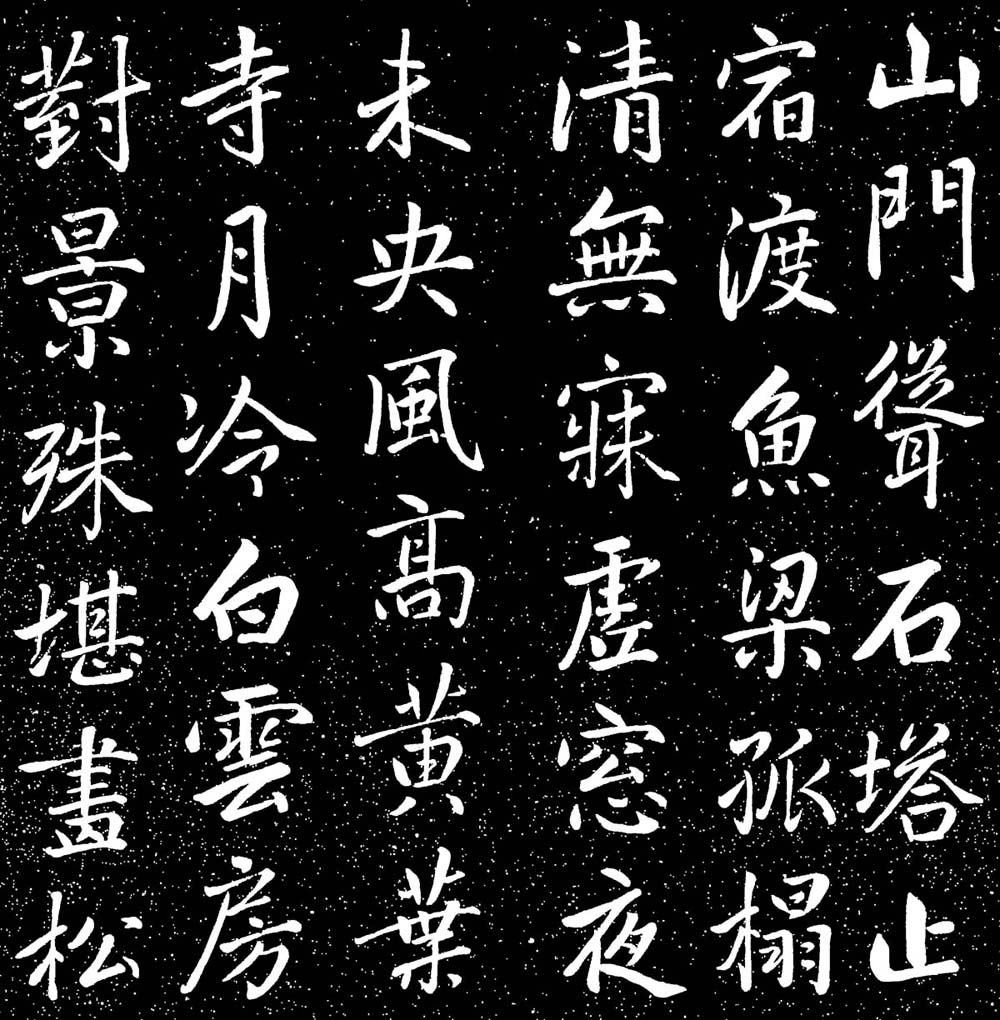 山門聳石塔止
宿渡魚梁孤榻
清無寐虛窓夜
未央風高黃葉
寺月冷白雲房
對景殊堪畫松